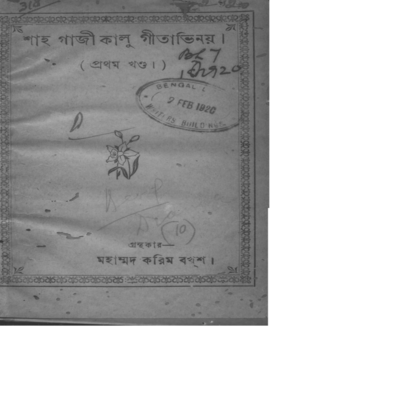 শাহ গাজী কালু গীতাভিনয়।
( প্রথম খণ্ড। )
BENGAL
7 FEB 1920
BUILDINGS
10
গ্রন্থকার—
মহাম্মদ করিম বখ্শ।